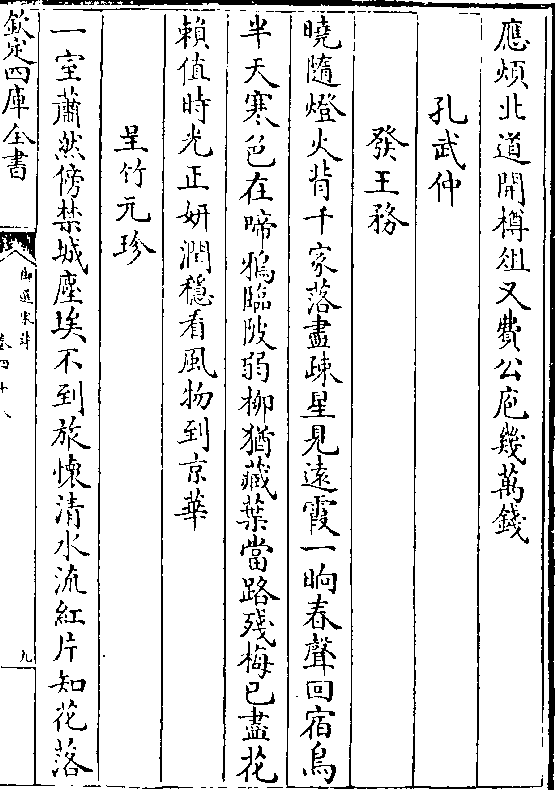 應煩北道開樽俎又費公庖幾萬錢
孔武仲
發王務
曉隨燈火背千家落盡疎星見遠霞一晌春聲回宿鳥
半天寒色在啼鴉臨陂弱柳猶藏葉當路殘梅已盡花
賴值時光正妍潤穩看風物到京華
呈竹元珍
一室蕭然傍禁城塵埃不到旅懷清水流紅片知花落
欽定四庫全書
御選宋詩
卷四十八
九